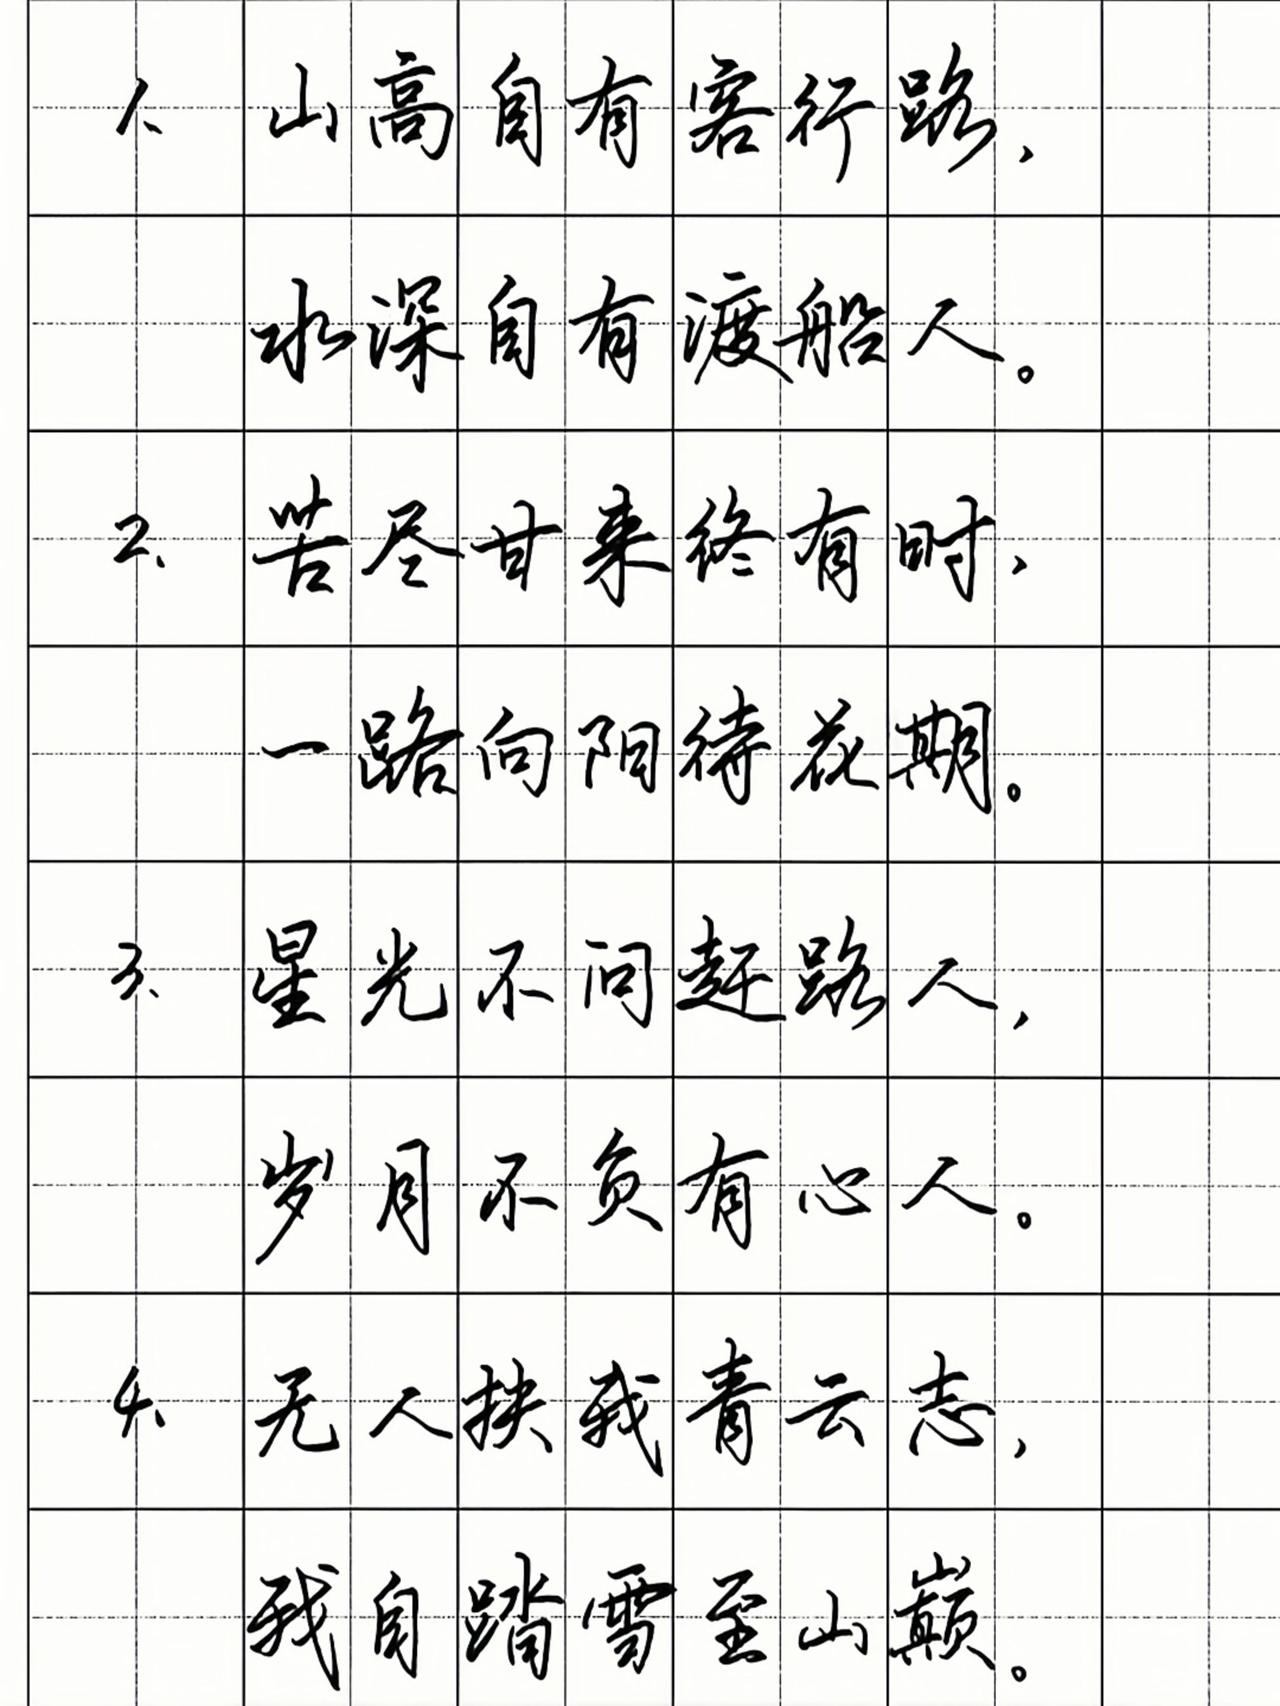 1、山高自有客行路，
水深自有渡船人。
2、苦尽甘来终有时，
一路向阳待花期。
3、星光不问赶路人，
岁月不负有心人。
4、无人扶我青云志，
我自踏雪至山巅。